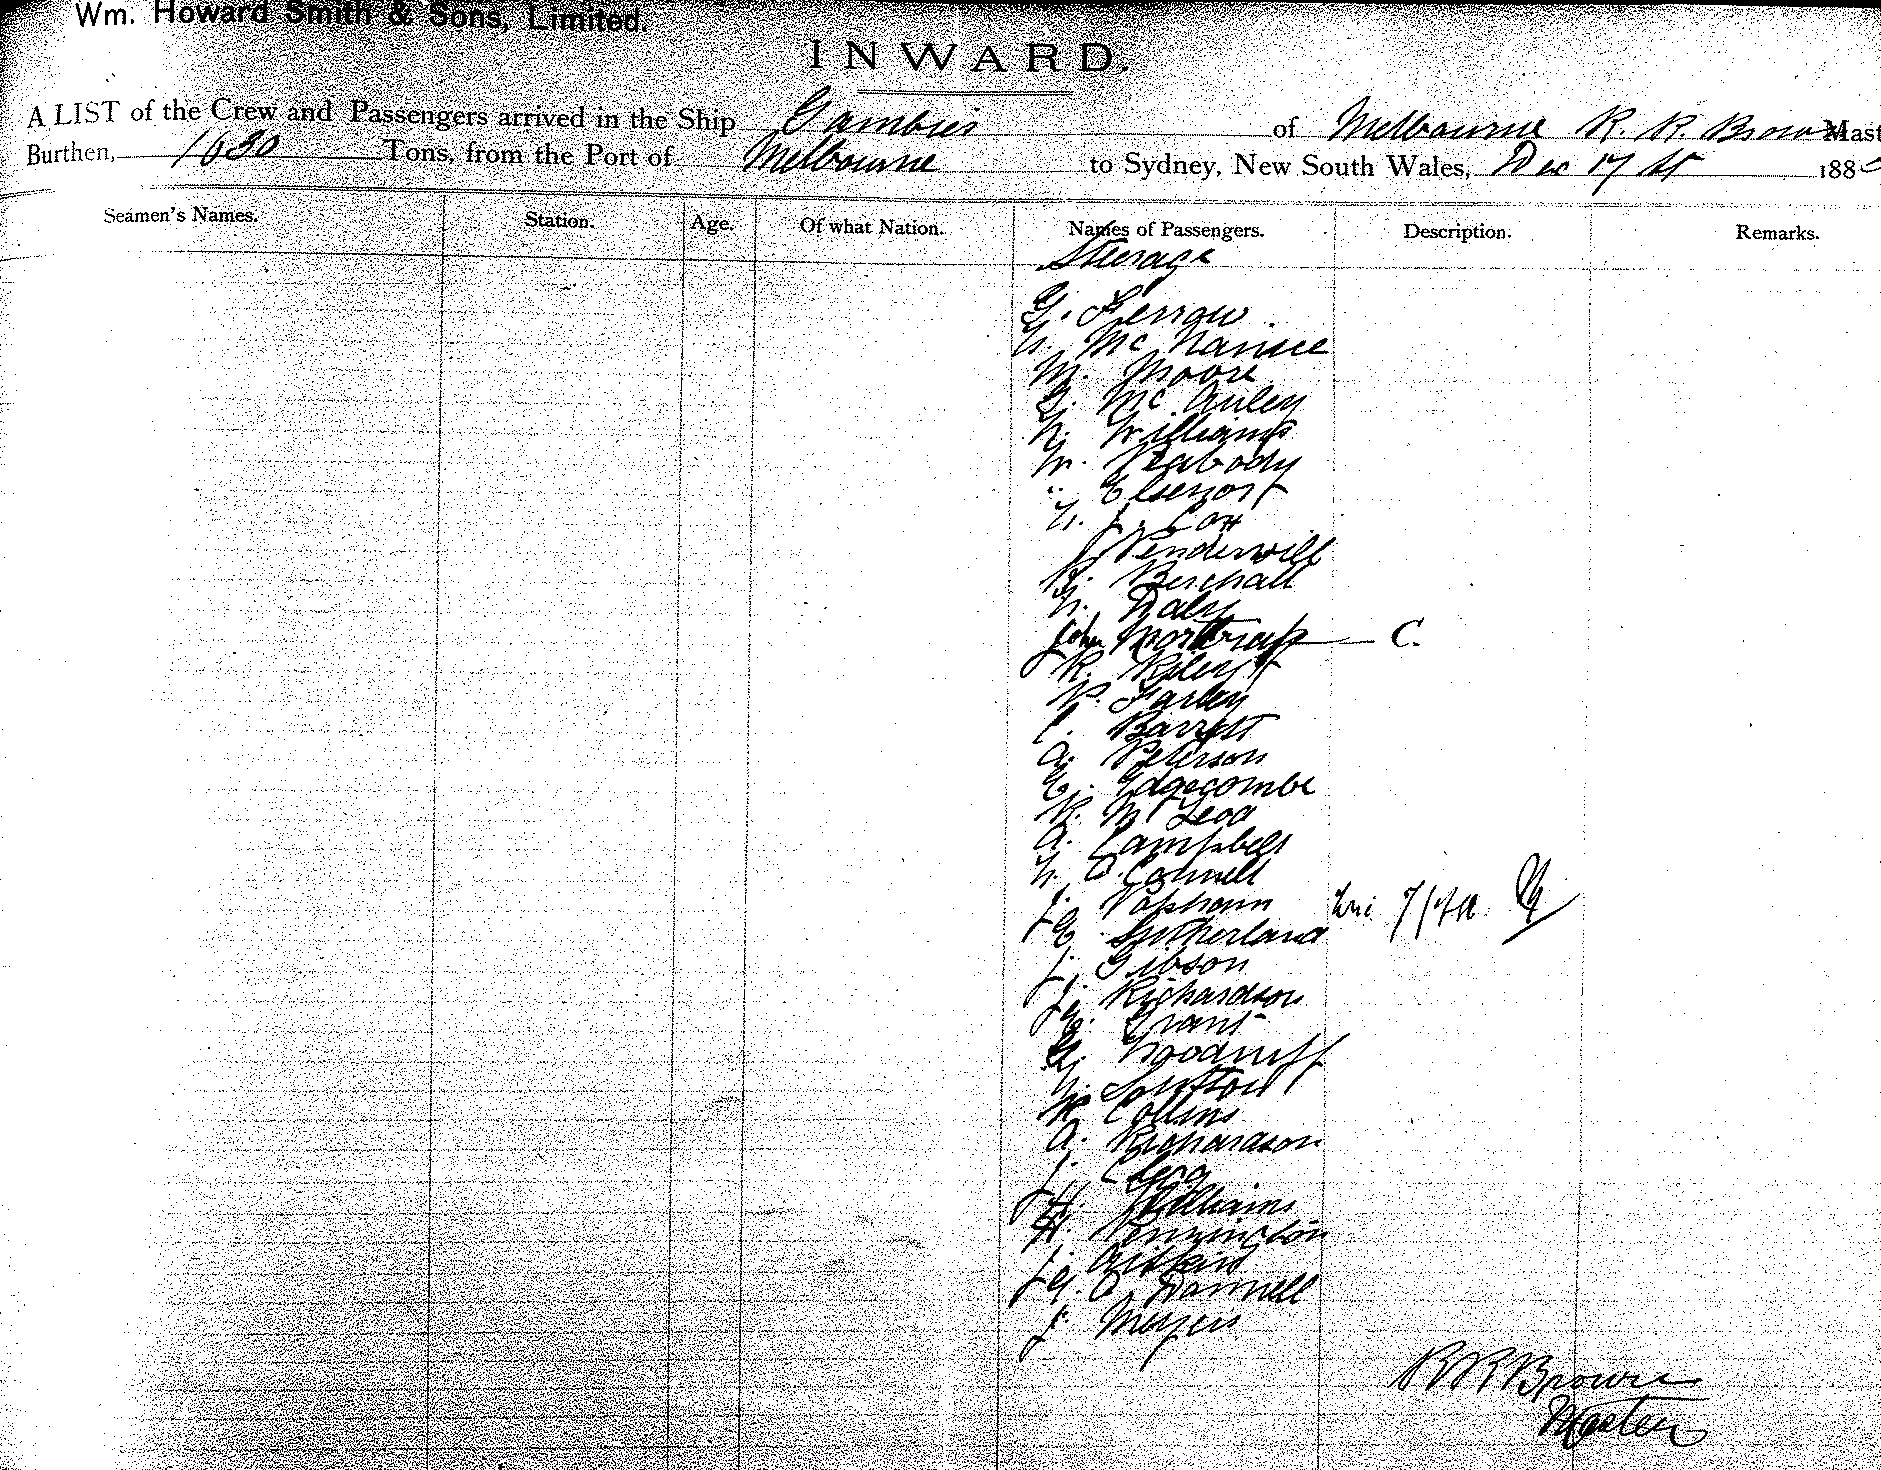 Wm. Howard Smith & Sons, Limited.
INWARD.
A LIST of the Crew and Passengers arrived in the Ship Gambier of Melbourne R. R. Brown Mast
Burthen, 1630 Tons, from the Port of Melbourne to Sydney, New South Wales, Dec 17th 188
Seamen's Names. Station. Age. Of what Nation. Names of Passengers. Description. Remarks.
Steerage
G.
Mc Namee
M. Moore
G. Mc Auley
H. Williams
W. Peabody
"
H. J. Cox
J Venderwill
Berchall
H. Daly
John C.
R. Riley
P. Farley
C. Barrett
A. Peterson
E. Edgecombe
R. Mc Leod
A. Campbell
H. O. Connell
J.
E. Sutherland
J. Gibson
J. Richardson
G. Grant
G. Woodruff
H. Sutton
W Collins
A. Richardson
J. Clegg
H. Williams
H. Pennington
J. Aitkin
G. O Donnell
J. Meyers
R R Browne
Master